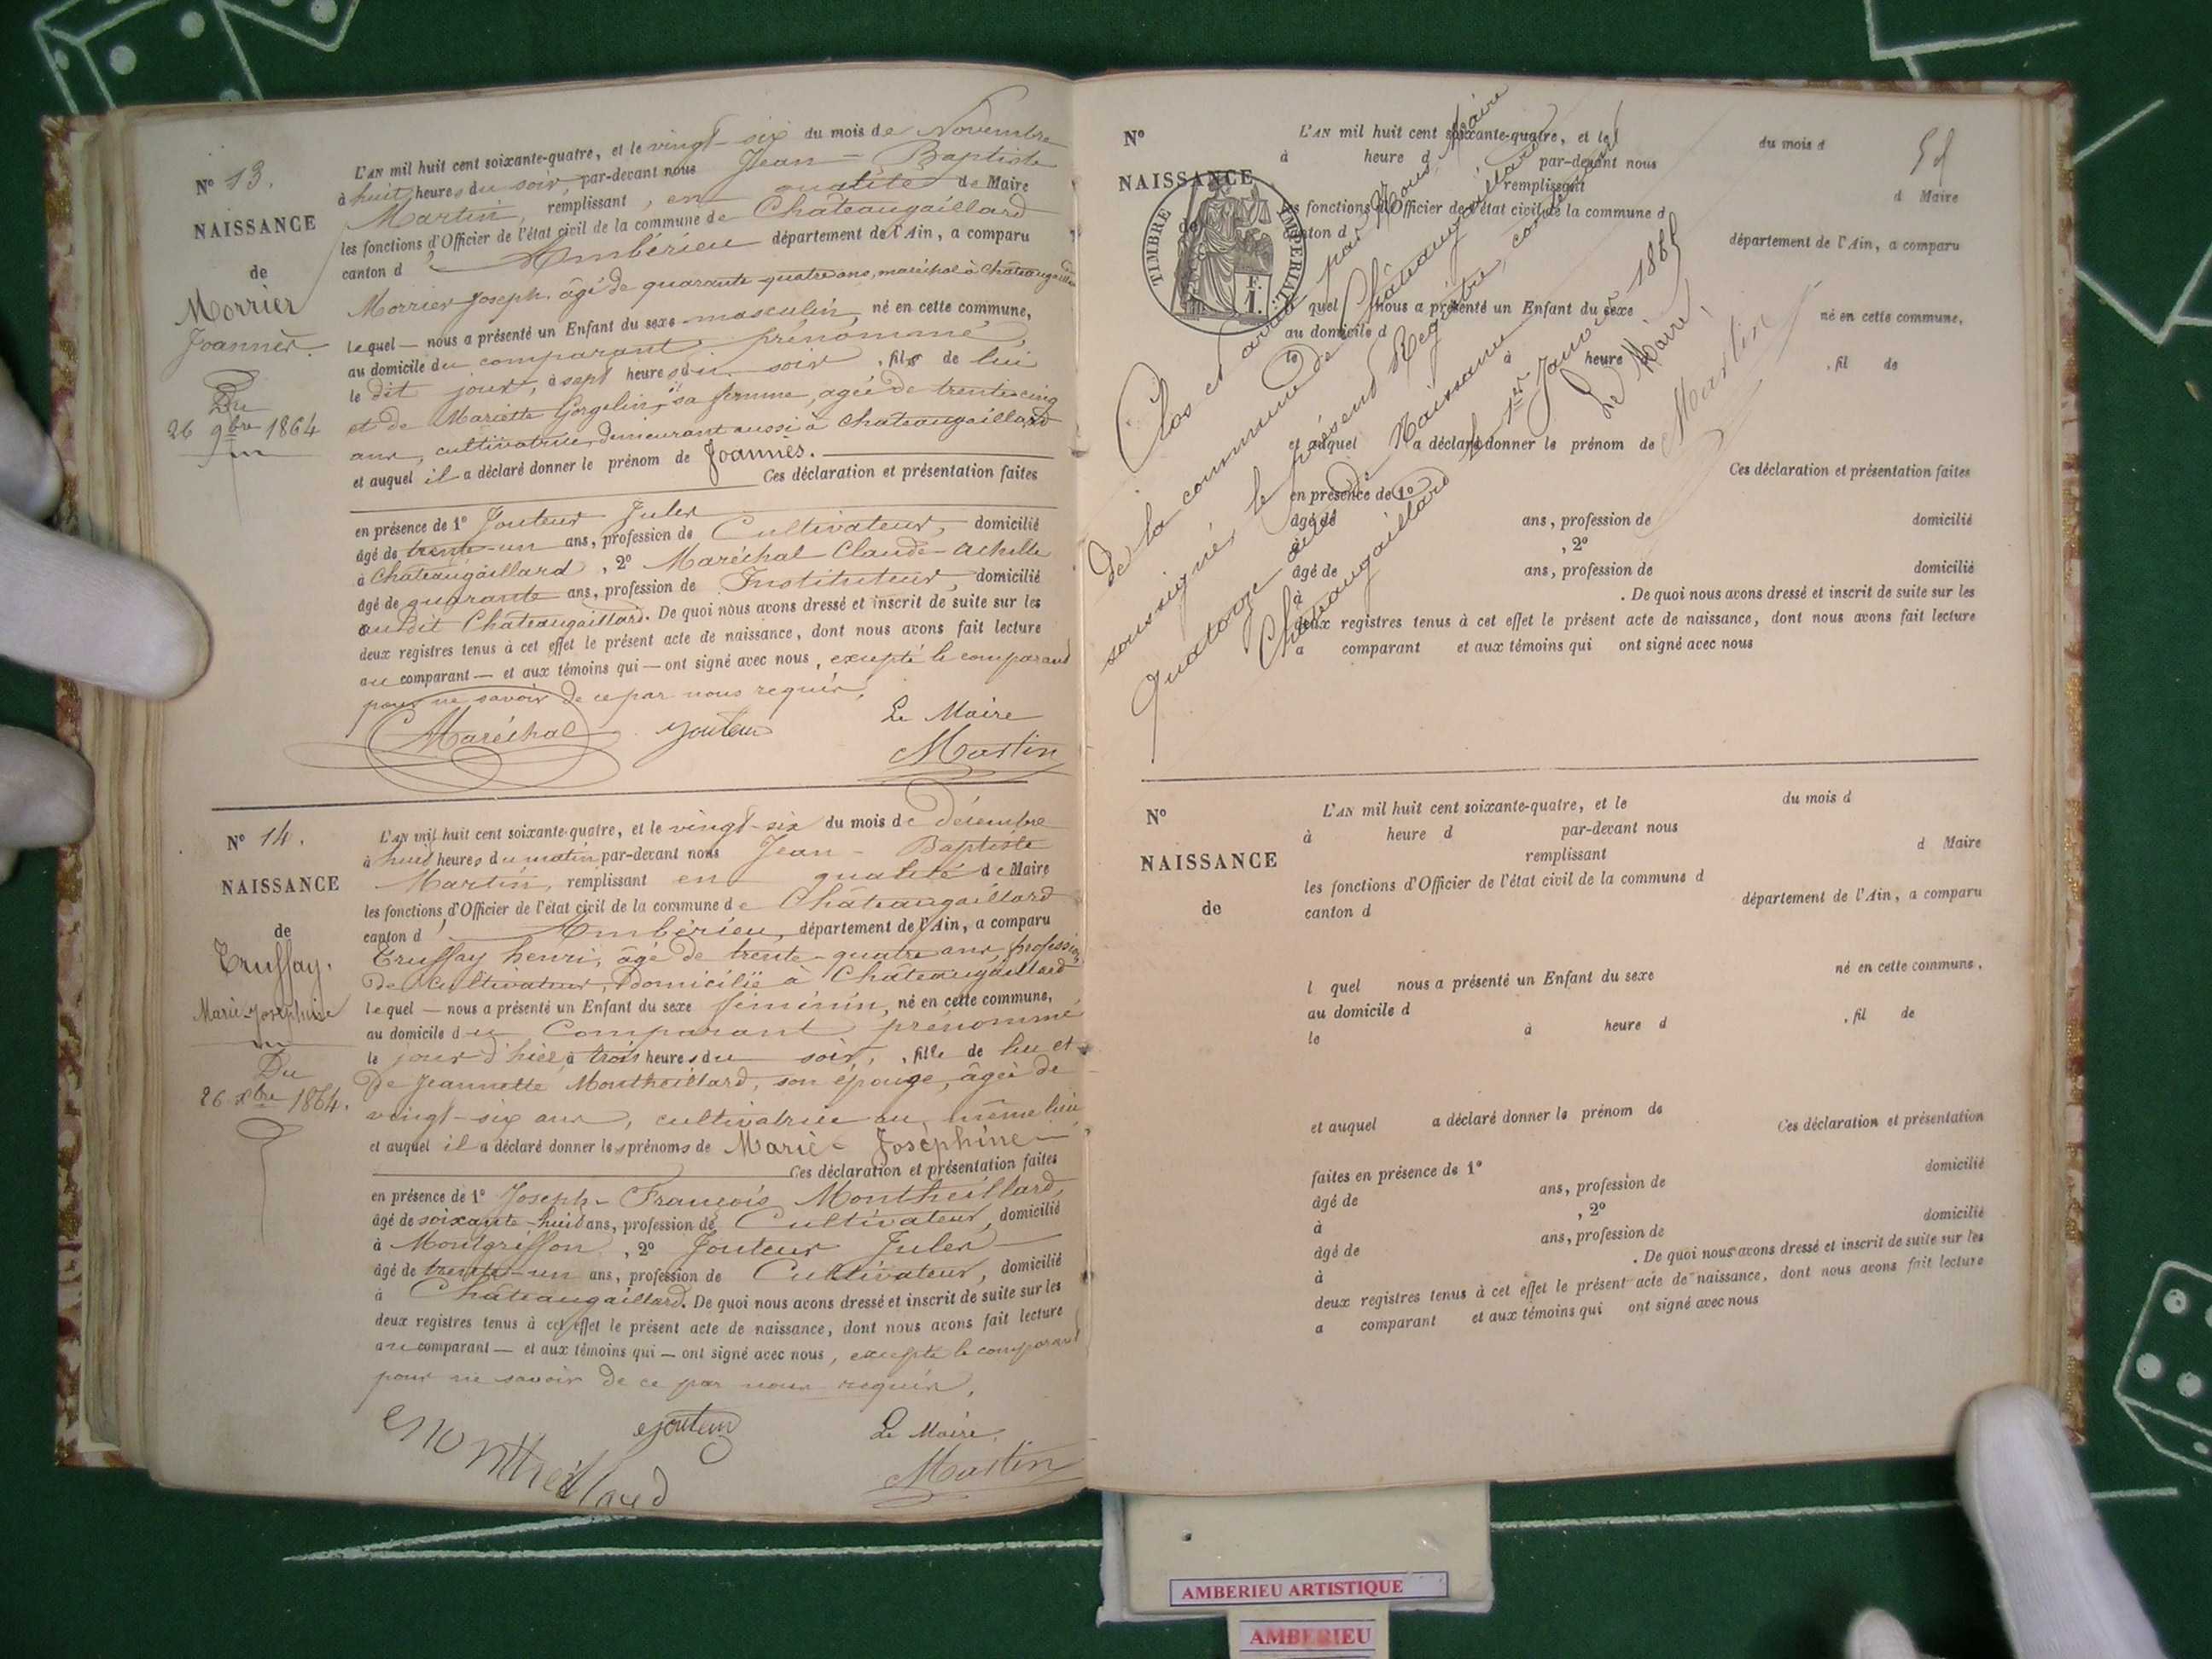 N° 13.
NAISSANCE
de
Morrier
Joannès.
Du
26 9bre 1864
L'AN mil huit cent soixante-quatre, et le vingt-six du mois de Novembre
à huit heures du soir, par-devant nous Jean-Baptiste
Martin, remplissant, en qualité de Maire
les fonctions d'Officier de l'état civil de la commune de Châteaugaillard
canton d'Ambérieu département de l'Ain, a comparu
Morrier Joseph, âgé de quarante-quatre ans, maréchal à Châteaugaillard
lequel — nous a présenté un Enfant du sexe masculin, né en cette commune,
au domicile du comparant prénommé,
le dit jour, à sept heures du soir, fils de lui
et de Mariette Gorgelin, sa femme, agée de trente cinq
ans, cultivatrice, demeurant aussi à Chateaugaillard
et auquel il a déclaré donner le prénom de Joannès.
Ces déclaration et présentation faites
en présence de 1° Jouteur Jules
âgé de trente-un ans, profession de Cultivateur, domicilié
à Châteaugaillard, 2° Maréchal Claude-Achille
âgé de quarante ans, profession de Instituteur, domicilié
audit Châteaugaillard. De quoi nous avons dressé et inscrit de suite sur les
deux registres tenus à cet effet le présent acte de naissance, dont nous avons fait lecture
au comparant — et aux témoins qui — ont signé avec nous, excepté le comparant
pour ne savoir de ce par nous requis.
Maréchal Jouteur Le Maire
Martin
N° 14.
NAISSANCE
de
Truffay.
Marie-Joséphine
Du
26 xbre 1864.
L'AN mil huit cent soixante-quatre, et le vingt-six du mois de décembre
à huit heures du matin par-devant nous Jean-Baptiste
Martin, remplissant en qualité de Maire
les fonctions d'Officier de l'état civil de la commune de Châteaugaillard
canton d'Ambérieu, département de l'Ain, a comparu
Truffay henri, âgé de trente-quatre ans, profession
de cultivateur, domicilié à Châteaugaillard
lequel — nous a présenté un Enfant du sexe féminin, né en cette commune,
au domicile du Comparant prénommé
le jour d'hier à trois heures du soir, fille de lui et
de Jeannette Montheillard, son épouse, âgée de
vingt-six ans, cultivatrice au même lieu
et auquel il a déclaré donner les prénoms de Marie-Joséphine
Ces déclaration et présentation faites
en présence de 1° Joseph-François Montheillard,
âgé de soixante-huit ans, profession de Cultivateur, domicilié
à Montgriffon, 2° Jouteur Jules
âgé de trente-un ans, profession de Cultivateur, domicilié
à Châteaugaillard. De quoi nous avons dressé et inscrit de suite sur les
deux registres tenus à cet effet le présent acte de naissance, dont nous avons fait lecture
au comparant — et aux témoins qui — ont signé avec nous, excepté le comparant
pour ne savoir de ce par nous requis.
Montheillard Jouteur Le Maire.
Martin
N°
NAISSANCE
de
TIMBRE IMPÉRIAL
1 F.
L'AN mil huit cent soixante-quatre, et le du mois d
à heure d par-devant nous
remplissant d Maire
les fonctions d'Officier de l'état civil de la commune d
canton d département de l'Ain, a comparu
l quel nous a présenté un Enfant du sexe né en cette commune,
au domicile d
le à heure d , fil de
et auquel a déclaré donner le prénom de
Ces déclaration et présentation faites
en présence de 1°
âgé de ans, profession de domicilié
à , 2°
âgé de ans, profession de domicilié
à . De quoi nous avons dressé et inscrit de suite sur les
deux registres tenus à cet effet le présent acte de naissance, dont nous avons fait lecture
a comparant et aux témoins qui ont signé avec nous
Clos et arrêté par Nous, Maire
de la commune de Châteaugaillard
soussigné, le présent Registre, contenant
Quatorze actes de Naissance
Châteaugaillard le 1er Janvier 1865
Le Maire,
Martin
N°
NAISSANCE
de
L'AN mil huit cent soixante-quatre, et le du mois d
à heure d par-devant nous
remplissant d Maire
les fonctions d'Officier de l'état civil de la commune d
canton d département de l'Ain, a comparu
l quel nous a présenté un Enfant du sexe né en cette commune,
au domicile d
le à heure d , fil de
et auquel a déclaré donner le prénom de
Ces déclaration et présentation
faites en présence de 1°
âgé de ans, profession de domicilié
à , 2°
âgé de ans, profession de domicilié
à . De quoi nous avons dressé et inscrit de suite sur les
deux registres tenus à cet effet le présent acte de naissance, dont nous avons fait lecture
a comparant et aux témoins qui ont signé avec nous
AMBERIEU ARTISTIQUE
AMBERIEU